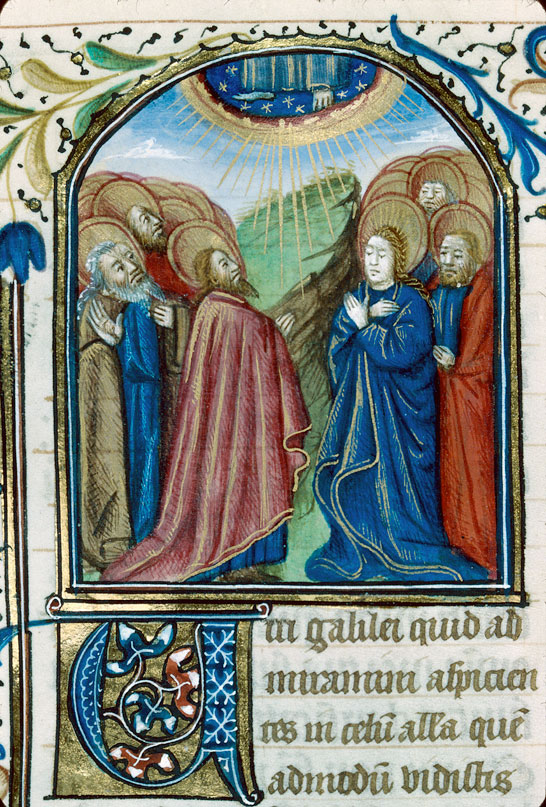 Uiri galilei quid ad
miramini aspicien
tes in celū alla quē
admodū vidistis